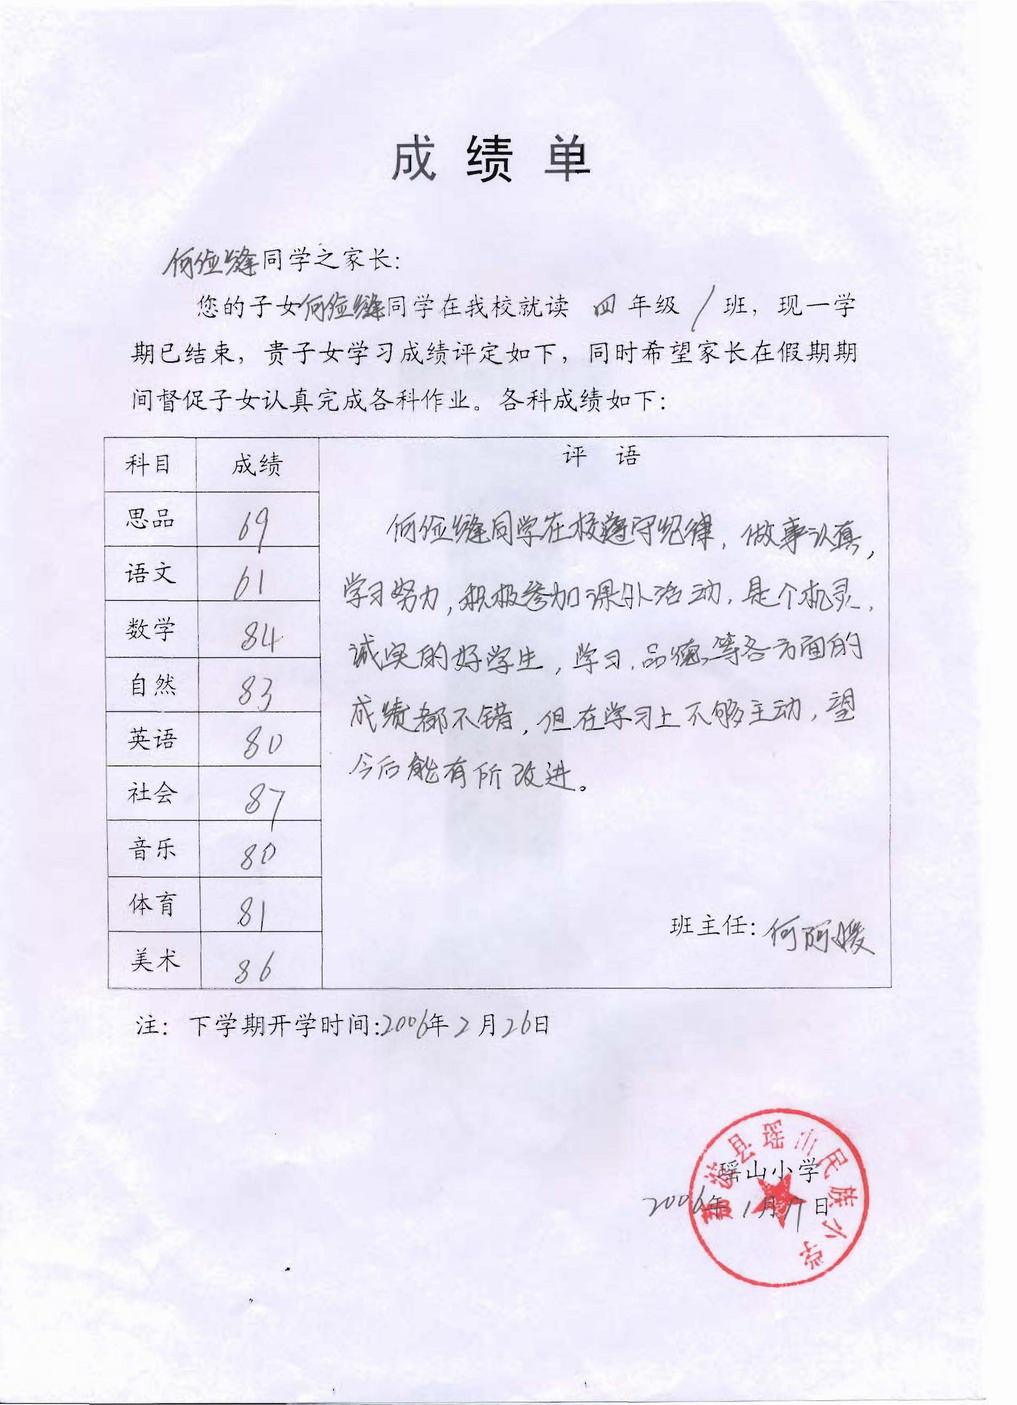 成绩单
何俭缝同学之家长：
您的子女何俭缝同学在我校就读 四 年级 1 班，现一学
期已结束，贵子女学习成绩评定如下，同时希望家长在假期期
间督促子女认真完成各科作业。各科成绩如下：
科目 成绩 评 语
思品 69
语文 61
数学 84
自然 83
英语 80
社会 87
音乐 80
体育 81
美术 86
何俭缝同学在校遵守纪律，做事认真，
学习努力，积极参加课外活动，是个机灵，
诚实的好学生，学习、品德、等各方面的
成绩都不错，但在学习上不够主动，望
今后能有所改进。
班主任：何阿媛
注：下学期开学时间：2006年2月26日
荔波县瑶山民族小学
瑶山小学
2006年1月17日